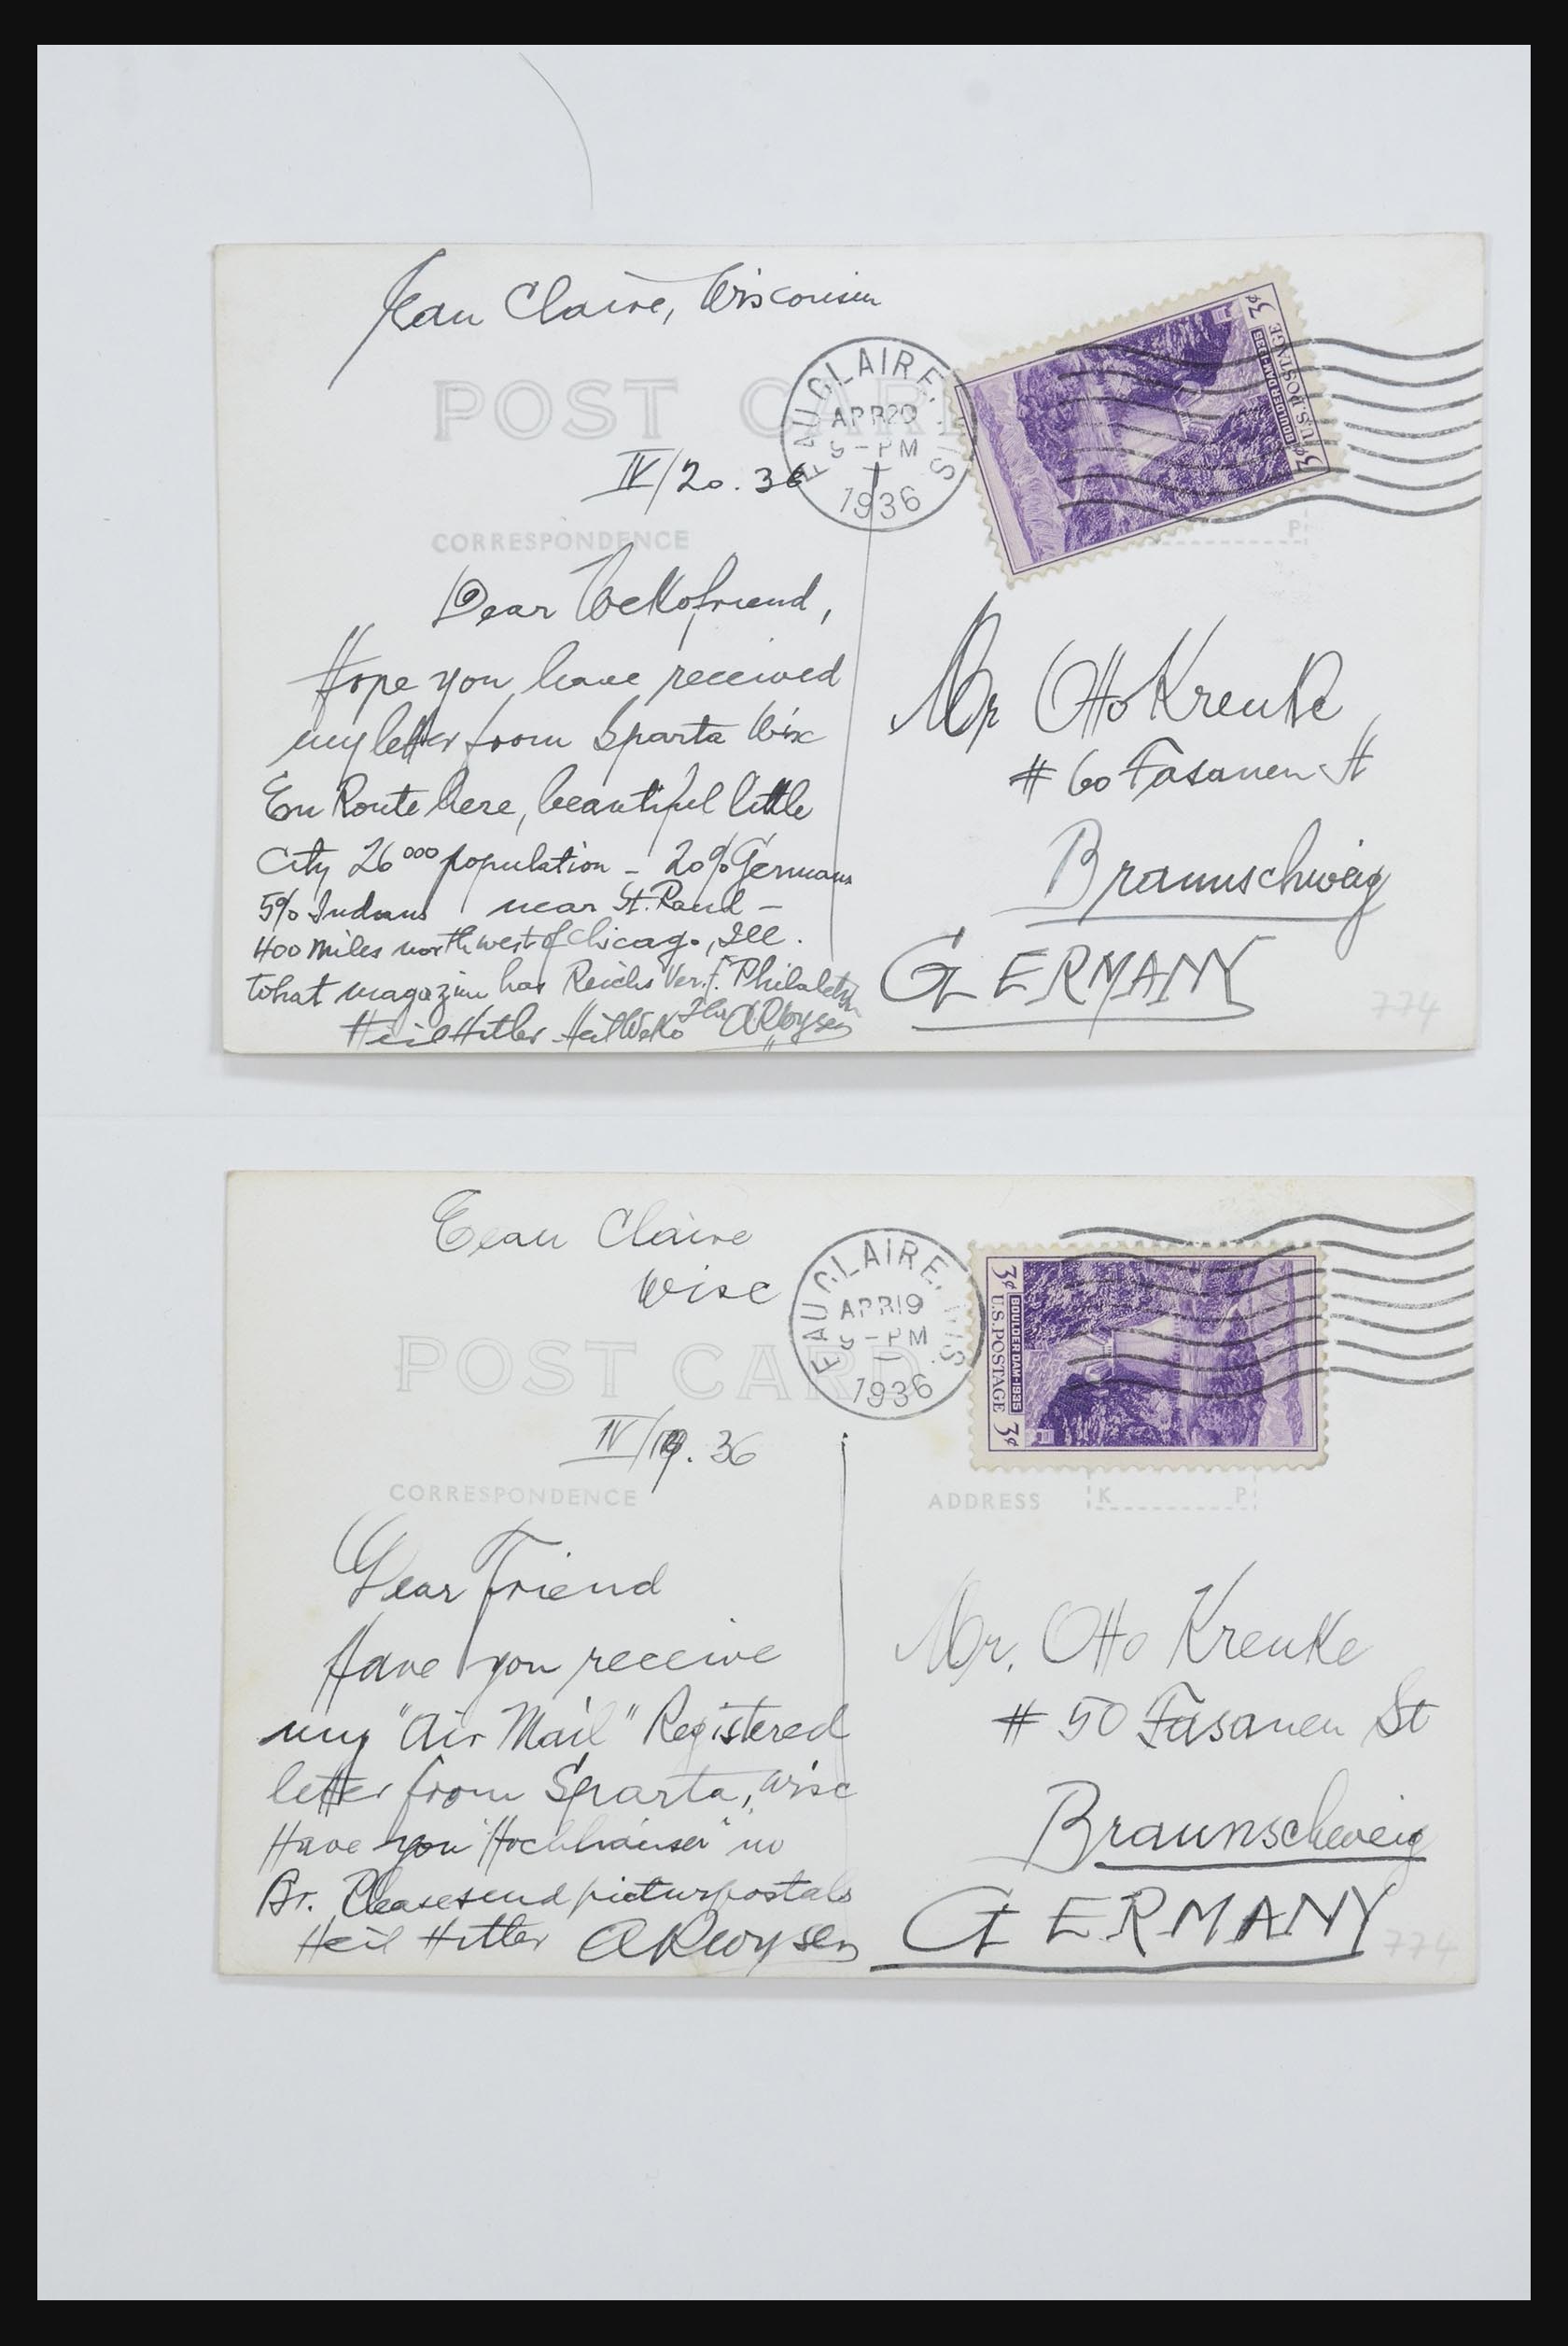 Eau Claire, Wisconsin
POST CARD
EAU CLAIRE, WIS
APR 20
9-PM
1936
3¢ U.S. POSTAGE 3¢
BOULDER DAM-1935
IV/20.36
CORRESPONDENCE
P
Dear Wekofriend,
Hope you have received
my letter from Sparta Wisc
En Route here, beautiful little
City 26000 population - 20% Germans
5% Indians near St. Paul -
400 miles northwest of Chicago, Ill.
What magazin has Reichs Ver. f. Philatelisten
Heil Hitler Heil WeKo Ihr ARoysen
Mr Otto Krenke,
# 60 Fasanen St
Braunschweig
GERMANY
774
Eeau Claire
Wisc
POST CARD
EAU CLAIRE, WIS.
APR 19
9-PM
1936
3¢ U.S. POSTAGE 3¢
BOULDER DAM-1935
IV/19.36
CORRESPONDENCE
ADDRESS
K P
Dear Friend
Have you receive
my "Air Mail" Registered
letter from Sparta, Wisc
Have you "Hochhäuser" in
Br. Please send picturpostals
Heil Hitler ARoysen
Mr. Otto Krenke
# 50 Fasanen St
Braunschweig
GERMANY
774